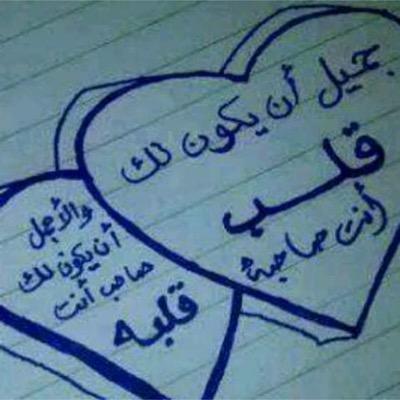 جميل أن يكون لك
قلب
أنت صاحبهُ
والأجمل
أن يكون لك
صاحب أنت
قلبه